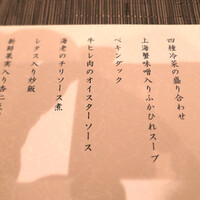 四種冷菜の盛り合わせ
上海蟹味噌入りふかひれスープ
ペキンダック
牛ヒレ肉のオイスターソース
海老のチリソース煮
レタス入り炒飯
新鮮果実入り杏仁